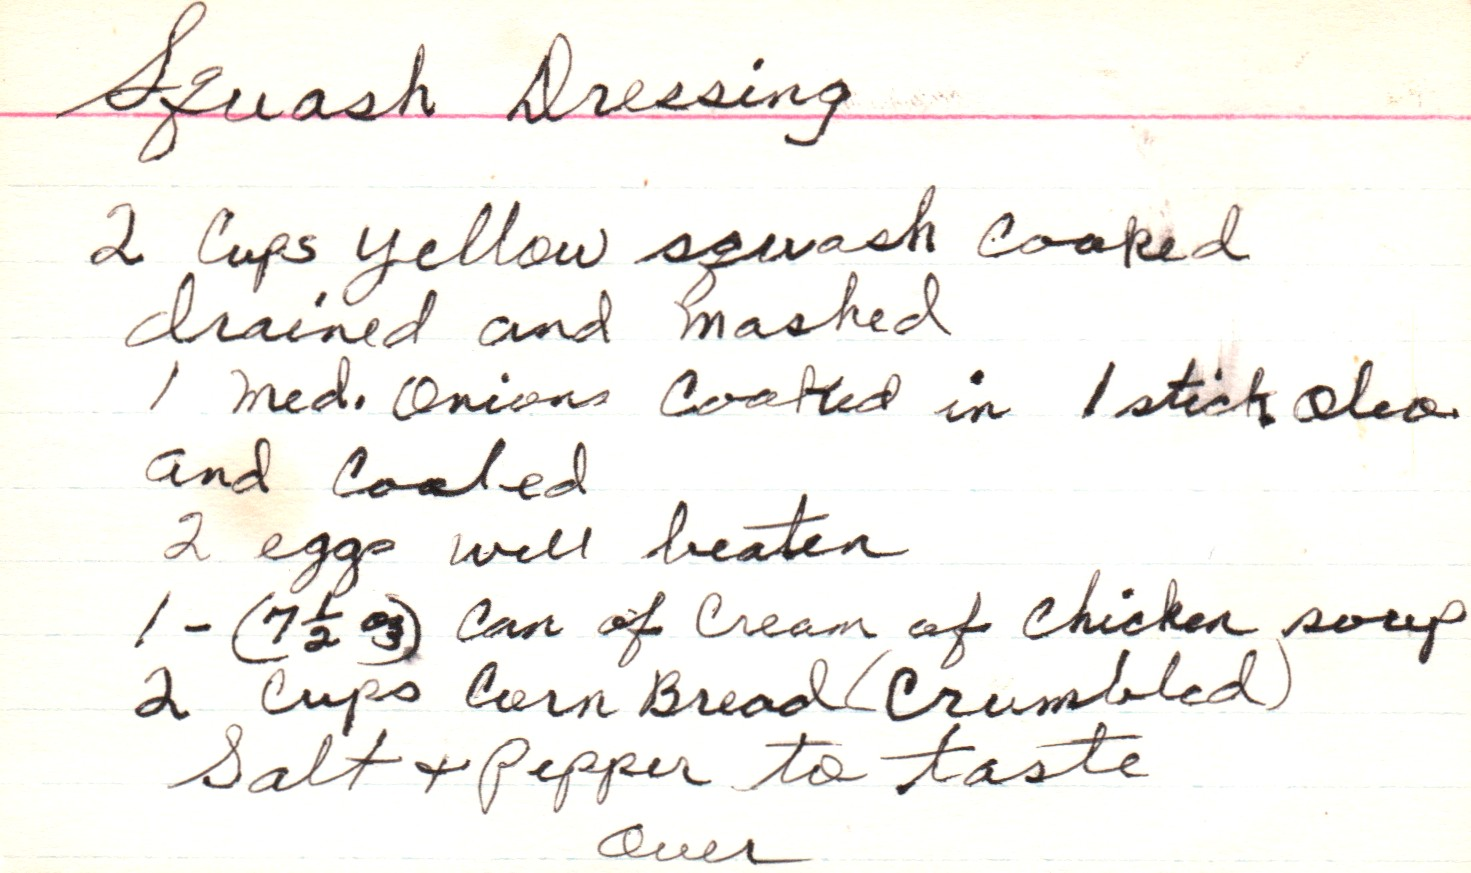 Squash Dressing
2 Cups yellow squash cooked
drained and mashed
1 med. onions cooked in 1 stick oleo
and cooled
2 eggs well beaten
1 - (7 1/2 oz) can of cream of chicken soup
2 cups corn Bread (Crumbled)
Salt + pepper to taste
over